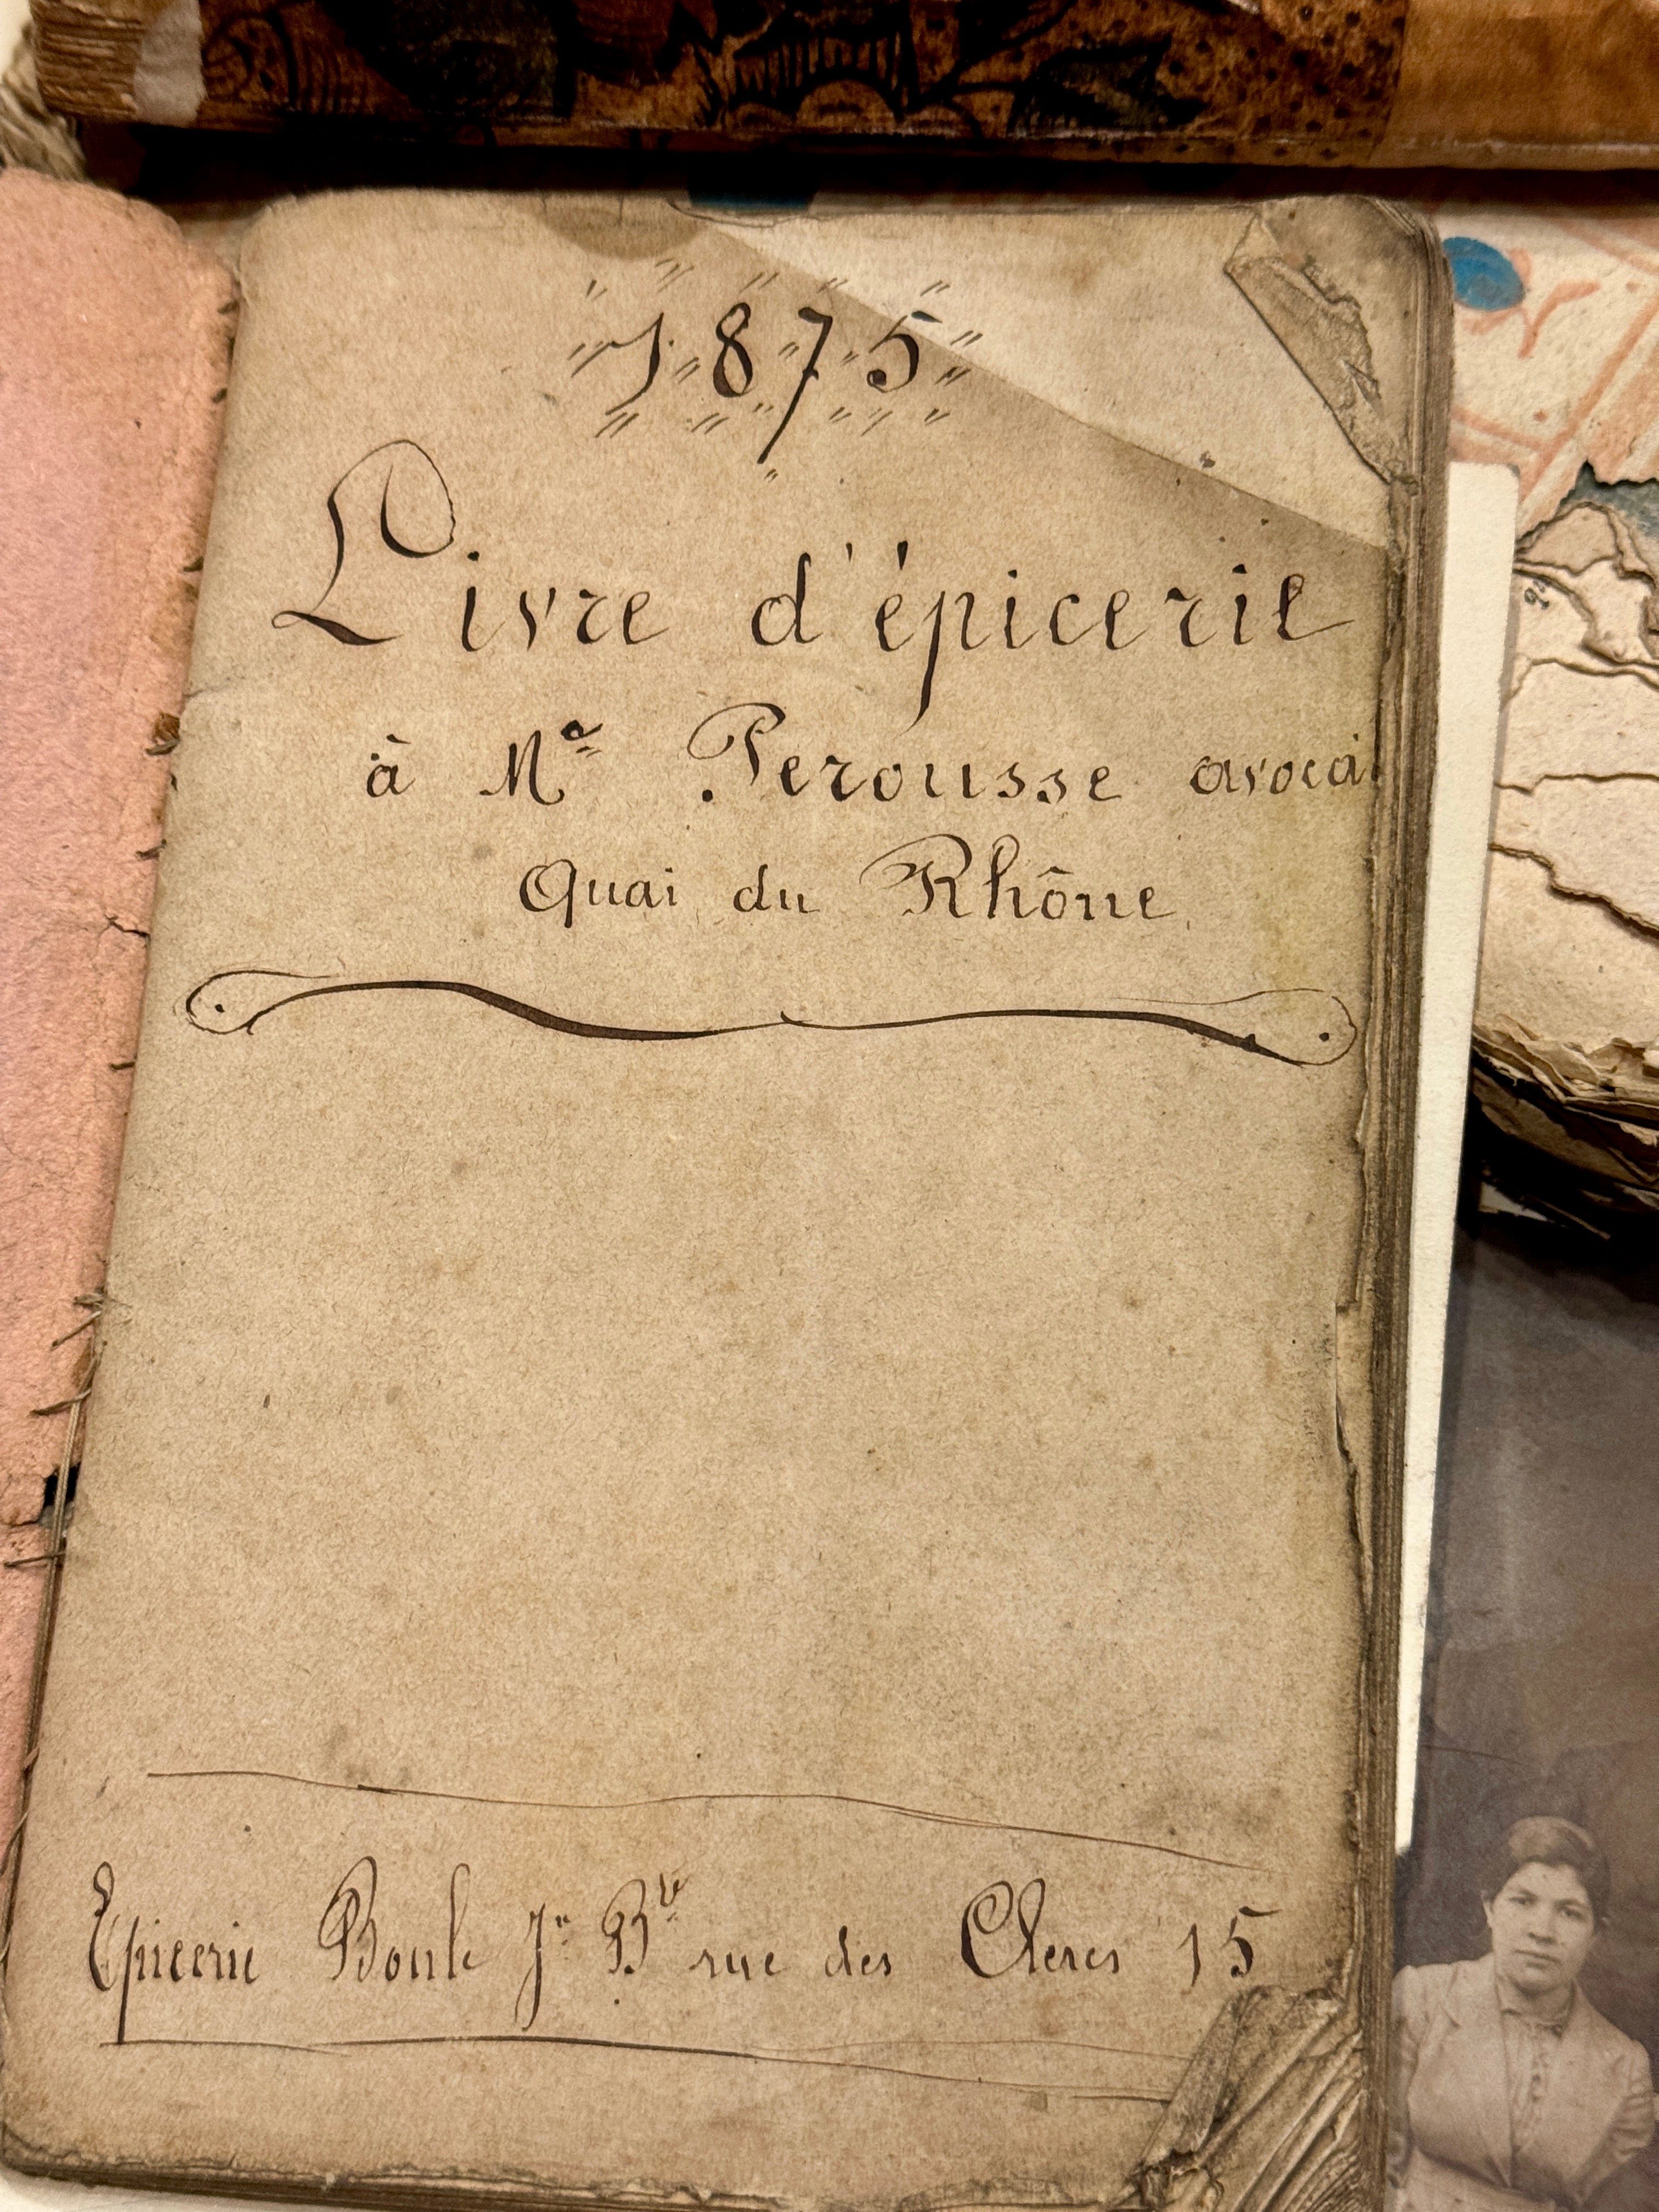 1875
Livre d'épicerie
à Mr Perousse avoca
Quai du Rhône
Epicerie Boule Jn Bte rue des Clercs 15